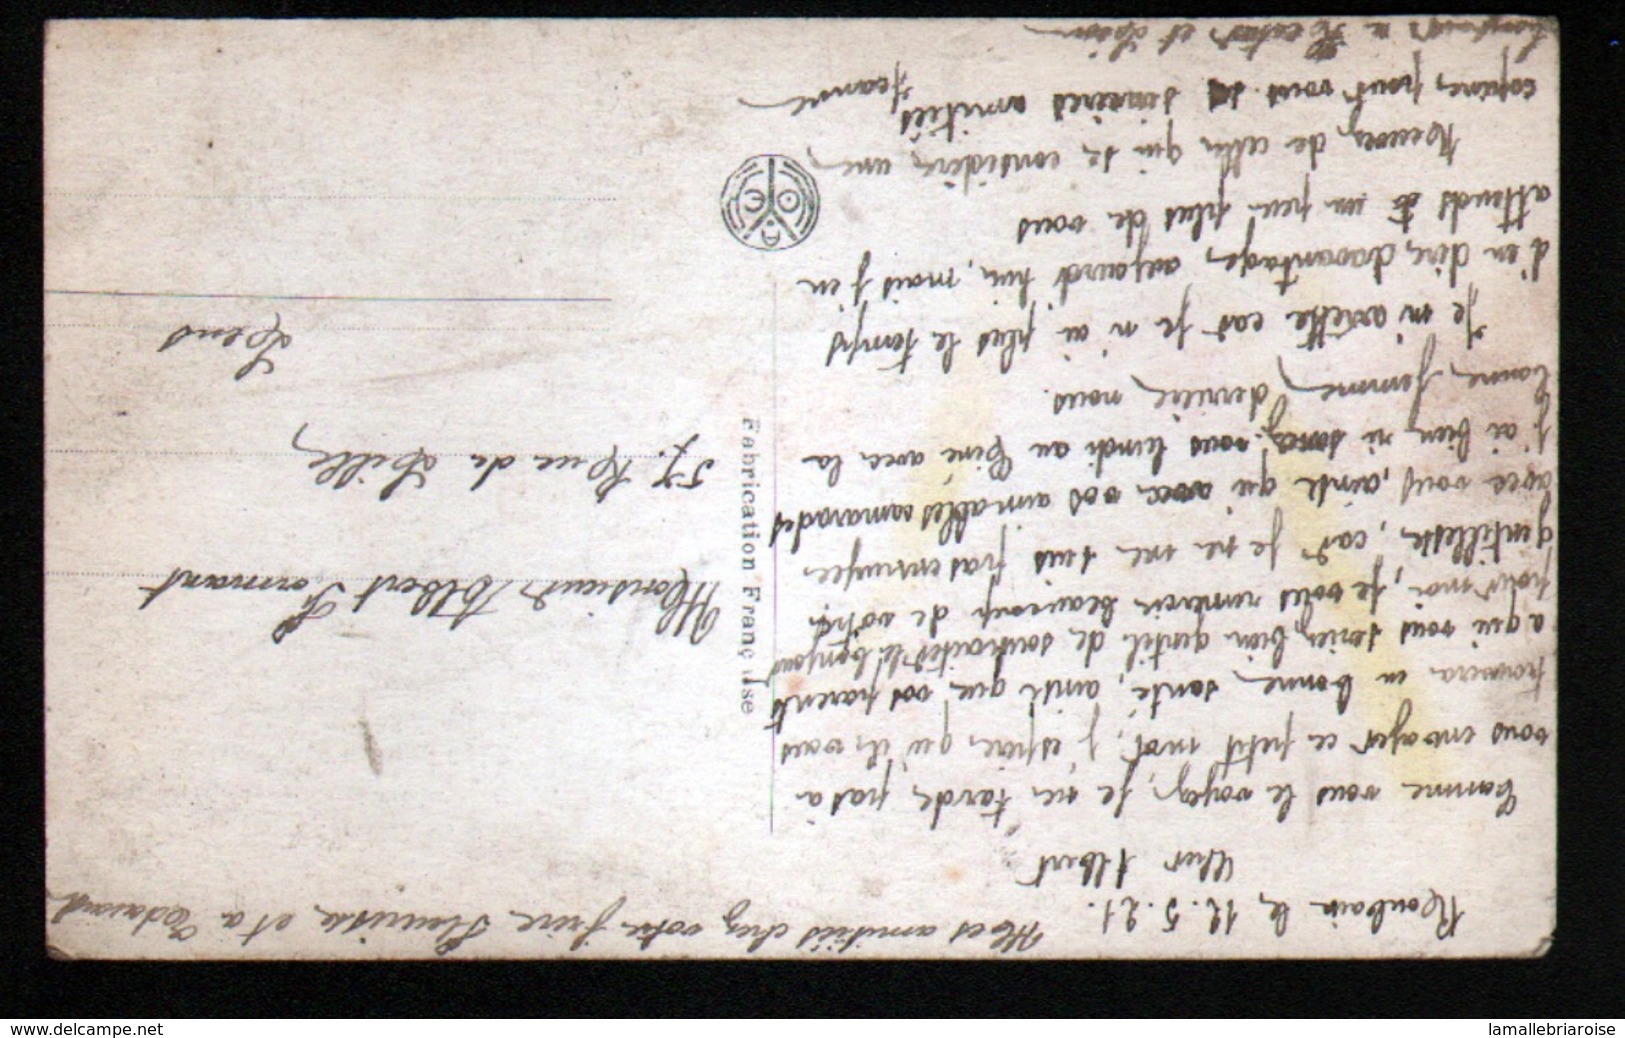 Roubaix le 12.5.21.
Cher Albert
Comme vous le voyez, je ne tarde pas à
vous envoyer ce petit mot, j'espère qu'il vous
trouvera en bonne santé, ainsi que vos parents
a qui vous seriez bien gentil de souhaiter le bonjour
pour moi, je vous remercie beaucoup de votre
gentillesse, car je ne me suis pas ennuyée
avec vous, ainsi qu'avec vos aimables camarades
j'ai bien ri vous lundi au Ciné avec la
bonne femme derrière nous.
Je m'arrette car je n'ai plus le temps
d'en dire davantage aujourd'hui, mais j'en
attends un peu plus de vous
Recevez de celle qui se considère une
copine, pour vous sincères amitiés
Jeanne
et
Mes amitiés chez votre frère et a Edouard
Fabrication Française
Monsieur Albert
57. Rue de Lille
Lens
www.delcampe.net
lamallebriaroise